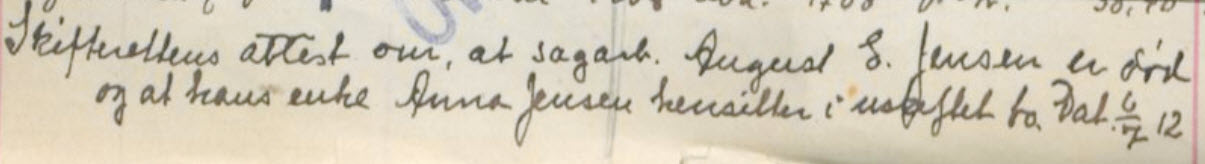 Skifterettens attest om, at sagarb. August E. Jensen er død
og at hans enke Anna Jensen hensitter i uskiftet bo. Dat. 6/7 12